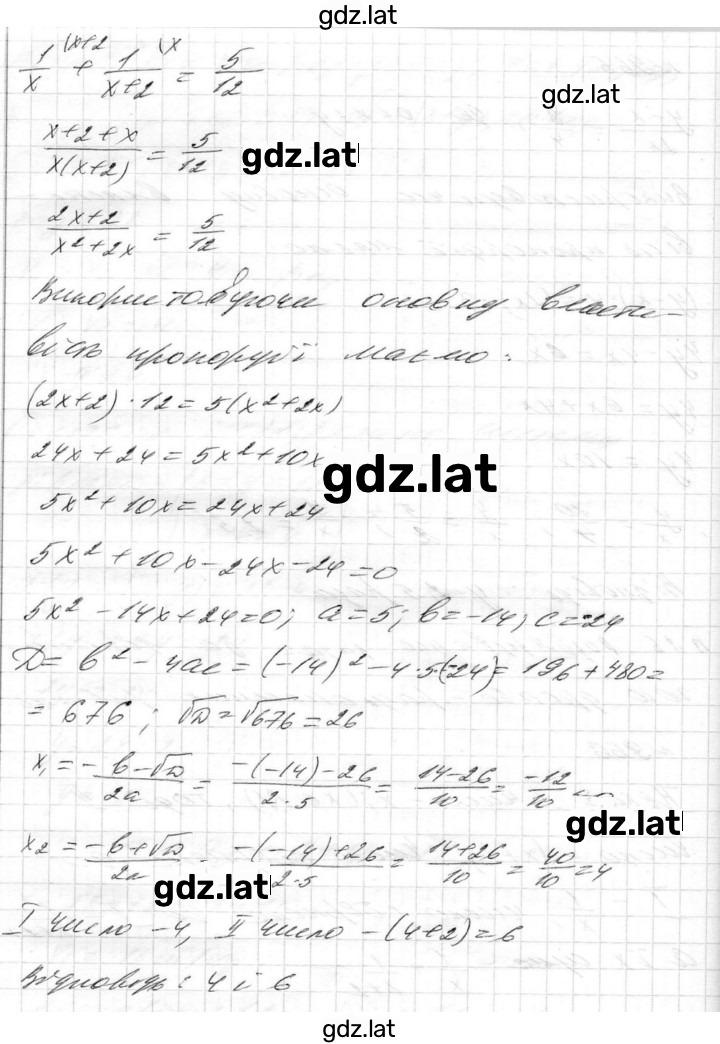 gdz.lat
1/x \x+2 + 1/(x+2) \x = 5/12
gdz.lat
(x+2+x)/(x(x+2)) = 5/12
gdz.lat
(2x+2)/(x²+2x) = 5/12
Використовуючи основну власти-
вість пропорції маємо:
(2x+2)·12=5(x²+2x)
24x+24=5x²+10x
gdz.lat
5x²+10x=24x+24
5x²+10x-24x-24=0
5x²-14x+24=0; a=5; b=-14; c=-24
D=b²-4ac=(-14)²-4·5·(-24)=196+480=
=676; √D=√676=26
x₁=(-b-√D)/2a=(-(-14)-26)/(2·5)=(14-26)/10=-12/10
gdz.lat
x₂=(-b+√D)/2a=(-(-14)+26)/(2·5)=(14+26)/10=40/10=4
gdz.lat
I число -4, II число -(4+2)=6
Відповідь: 4 і 6
gdz.lat